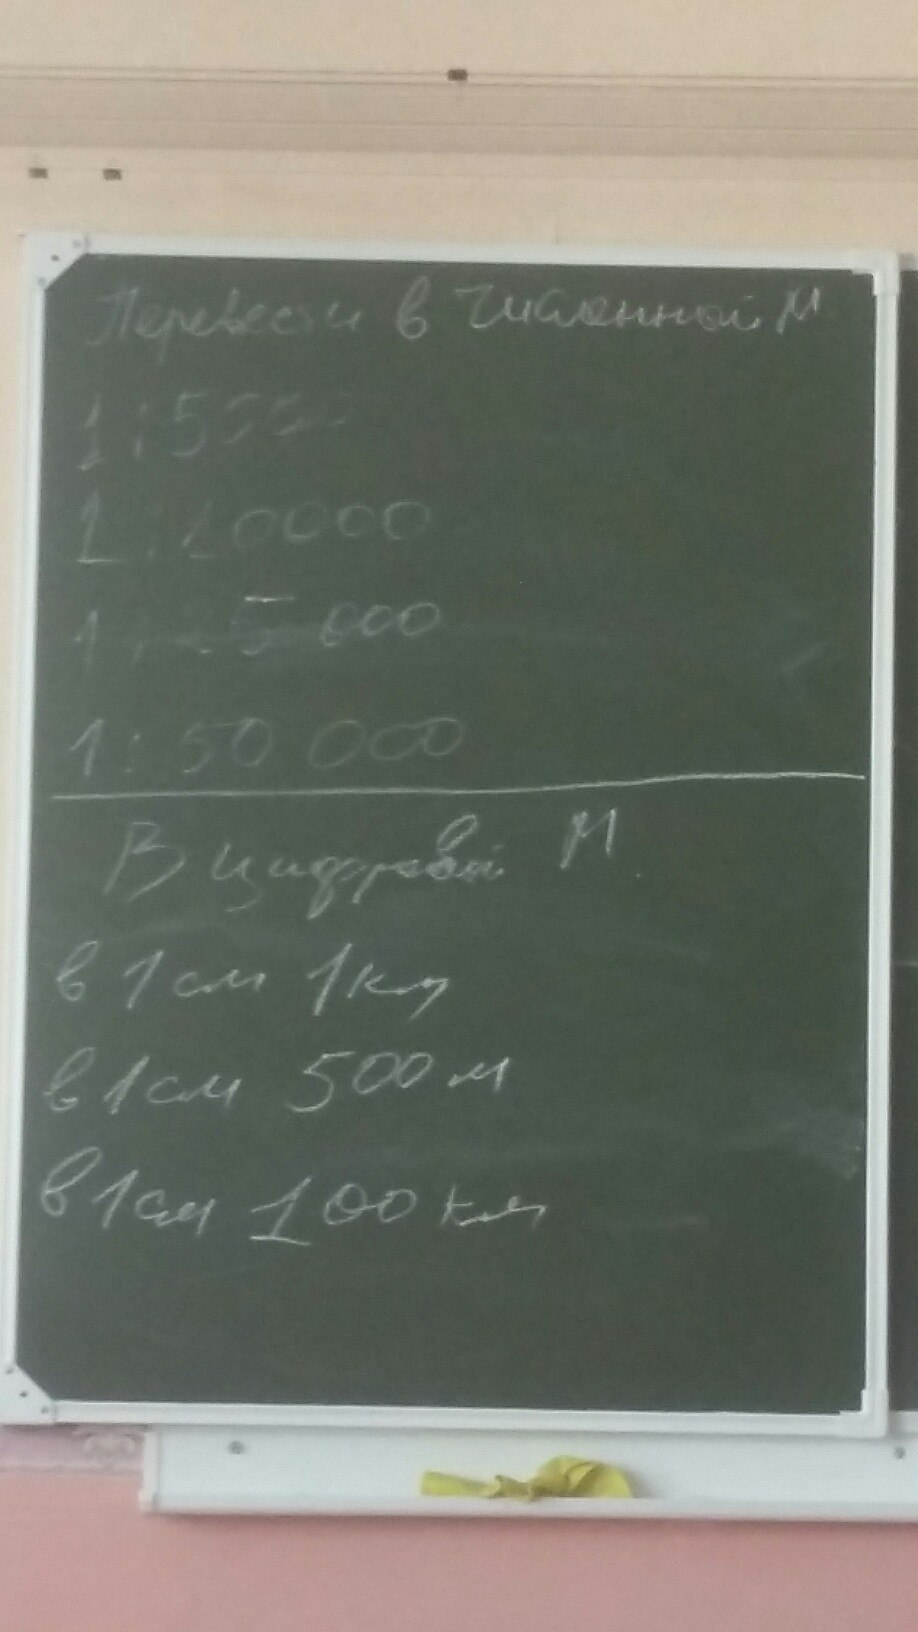 Перевести в численной М
1:500
1:10000
1:25 000
1:50 000
В цифровой М
в 1 см 1 км
в 1 см 500 м
в 1 см 100 км